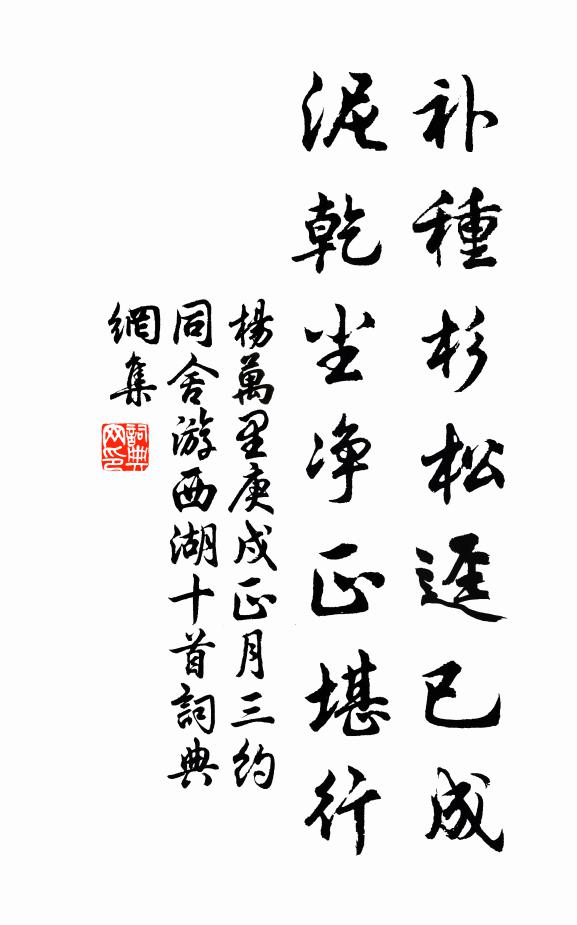 补種杉松逕已成
泥乾尘净正堪行
楊萬里庚戌正月三約
同舍游西湖十首詞典
網集
詞典
网印